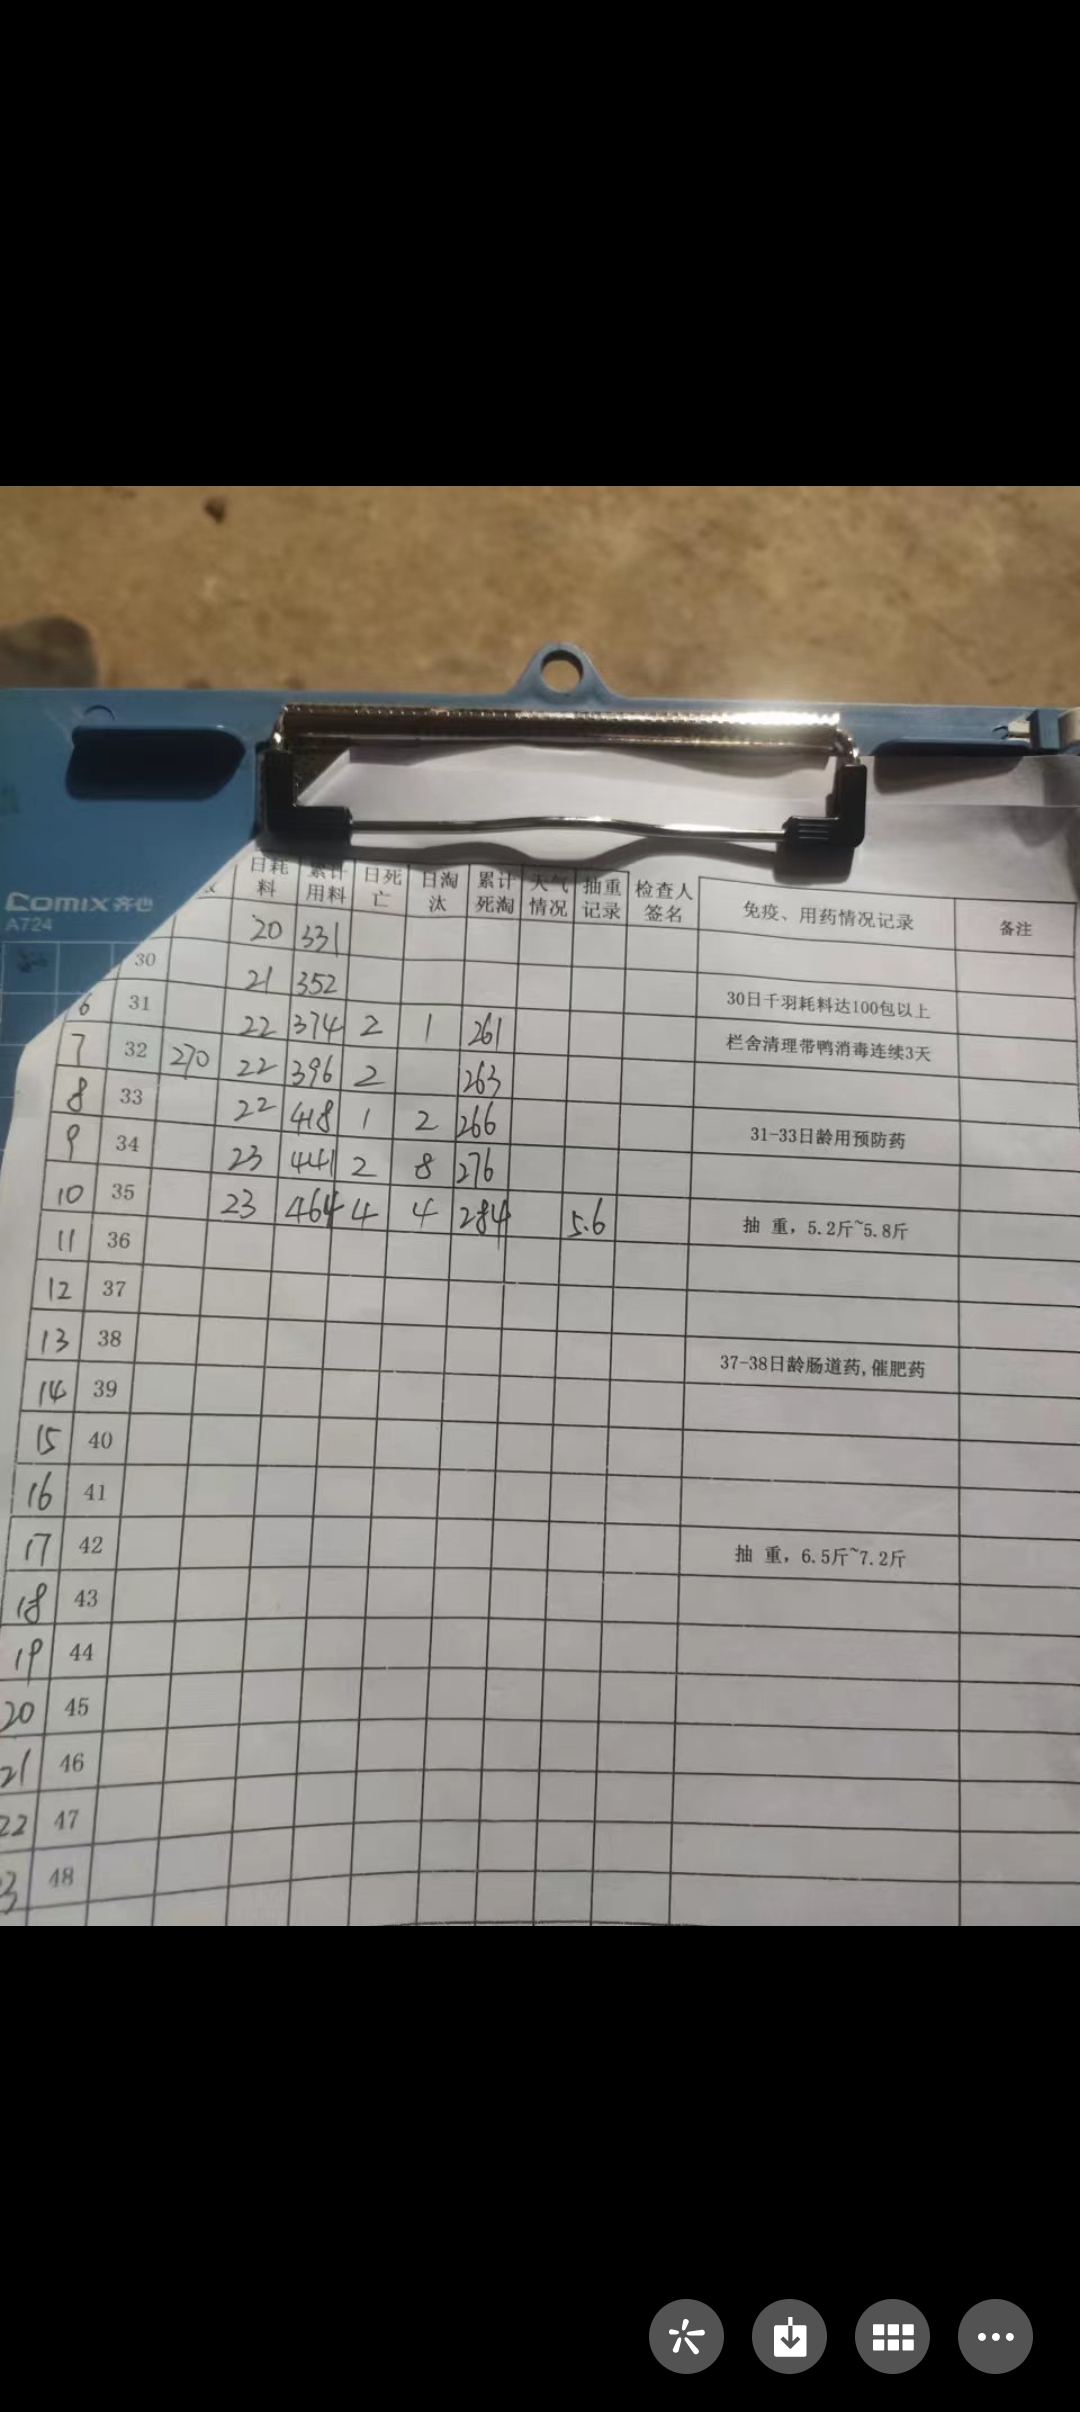 Comix 齐心
A724
日耗料 累计用料 日死亡 日淘汰 累计死淘 天气情况 抽重记录 检查人签名 免疫、用药情况记录 备注
20 331
30 21 352 30日千羽耗料达100包以上
6 31 22 374 2 1 261 栏舍清理带鸭消毒连续3天
7 32 270 22 396 2 263
8 33 22 418 1 2 266 31-33日龄用预防药
9 34 23 441 2 8 276
10 35 23 464 4 4 284 5.6 抽 重，5.2斤~5.8斤
11 36
12 37
13 38 37-38日龄肠道药,催肥药
14 39
15 40
16 41
17 42 抽 重，6.5斤~7.2斤
18 43
19 44
20 45
21 46
22 47
3 48